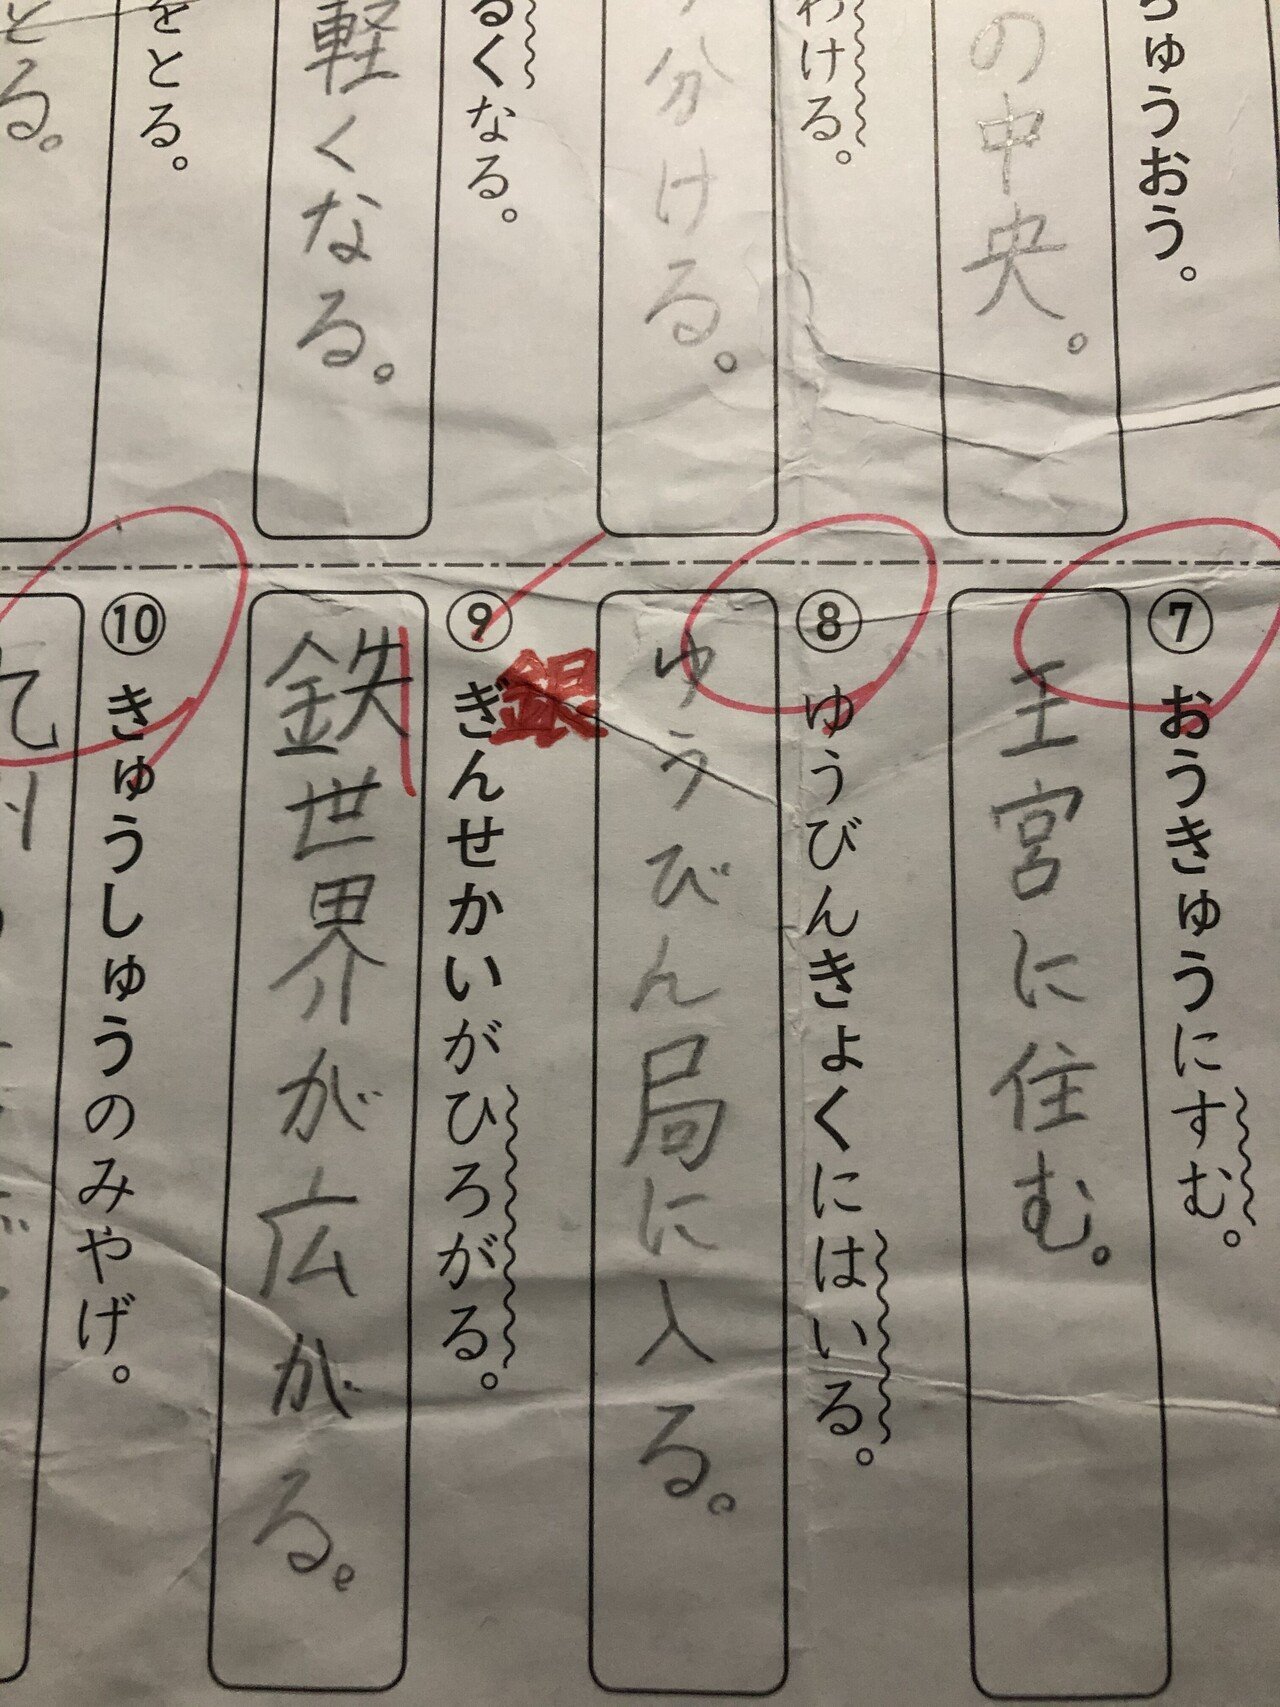 ちゅうおう。
の中央。
わける。
分ける。
るくなる。
軽くなる。
をとる。
とる。
⑦ おうきゅうにすむ。
王宮に住む。
⑧ ゆうびんきょくにはいる。
ゆうびん局に入る。
⑨ ぎんせかいがひろがる。
銀
鉄世界が広がる。
⑩ きゅうしゅうのみやげ。